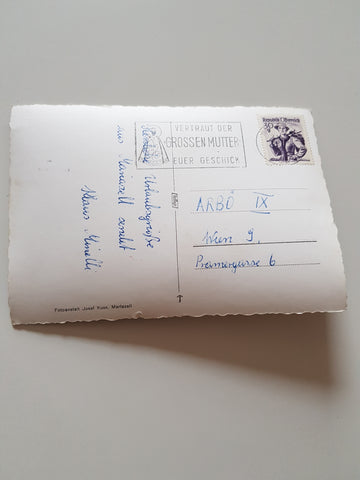 VERTRAUT DER
GROSSEN MUTTER
EUER GESCHICK
Republik Österreich
Herzliche Urlaubsgrüße
aus Mariazell sendet
Klaus
ARBÖ IX
Wien 9.
Pramergasse 6
Fotoanstalt Josef Kuss, Mariazell